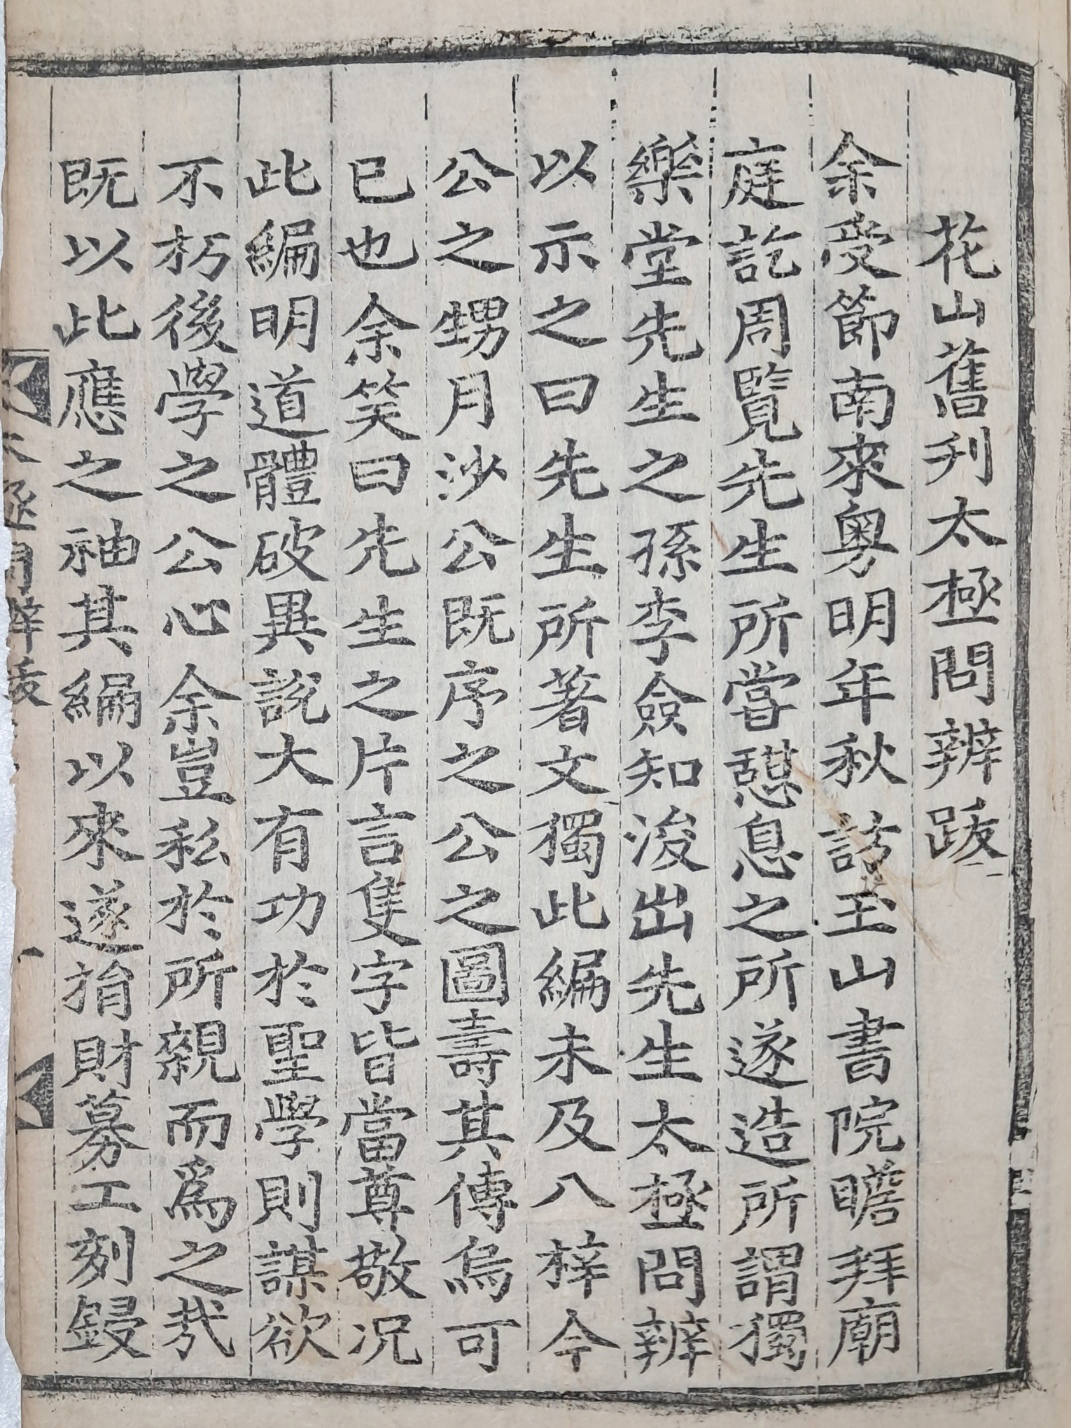 花山舊刋太極問辨跋
余受節南來粤明年秋訪玉山書院瞻拜廟
庭訖周覽先生所嘗憩息之所遂造所謂獨
樂堂先生之孫李僉知浚出先生太極問辨
以示之曰先生所著文獨此編未及入梓今
公之甥月沙公既序之公之圖壽其傳烏可
已也余笑曰先生之片言隻字皆當尊敬况
此編明道體破異說大有功於聖學則謀欲
不朽後學之公心余豈私於所親而爲之㢤
既以此應之袖其編以來遂捐財募工刻鋟
太極問辨跋
一